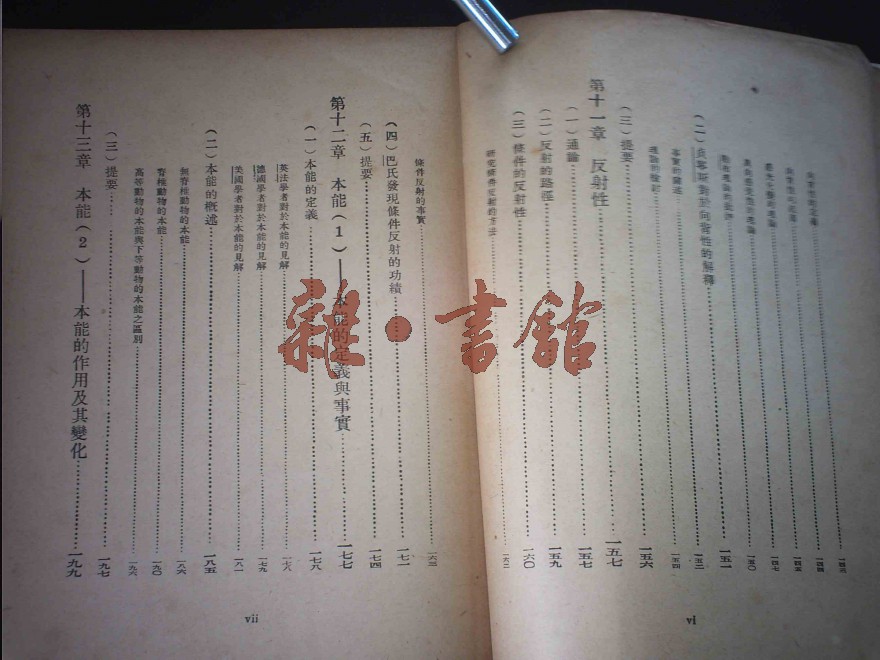 (二)貞寧斯對於向背性的解釋……一五二
事實的陳述……一五四
理論的檢討
(三)提要……一五六
第十一章 反射性……一五七
(一)通論……一五七
(二)反射的路徑……一五九
(三)條件的反射性……一六〇
研究條件反射的方法……一六二
vi
條件反射的事實
(四)巴氏發現條件反射的功績……一七一
(五)提要……一七四
第十二章 本能(1)——本能的定義與事實……一七七
(一)本能的定義……一七八
英法學者對於本能的見解……一七八
德國學者對於本能的見解……一七九
美國學者對於本能的見解……一八一
(二)本能的概述……一八五
無脊椎動物的本能……一八六
脊椎動物的本能……一九〇
高等動物的本能與下等動物的本能之區別……一九六
(三)提要……一九七
第十三章 本能(2)——本能的作用及其變化……一九九
vii
雜·書館